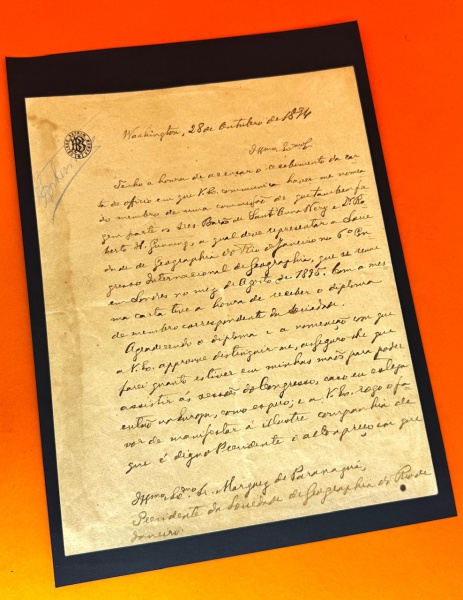 Washington, 28 de Outubro de 1894
Illmo. Exmo. Sr.
Tenho a honra de accusar o recebimento da car
ta de officio em que V. Ex. communica haver me nomea
do membro de uma commissão de que tambem fa
zem parte os Srs. Barão de Sant'Anna Nery e Dr. Ro
berto H. Gunning, a qual deve representar a Socie
dade de Geographia do Rio de Janeiro no 6º Con
gresso Internacional de Geographia, que se reune
em Londres no mez de Agosto de 1895. Com a mes
ma carta tive a honra de receber o diploma
de membro correspondente da Sociedade.
Agradecendo o diploma e a nomeação com que
a V. Ex. approuve distinguir me, asseguro-lhe que
farei quanto estiver em minhas mãos para poder
assistir ás sessões do Congresso, caso eu esteja
então na Europa, como espero; e a V. Ex. rogo o fa
vor de manifestar á illustre companhia de
que é digno Presidente o alto apreço em que
Illmo. Exmo. Sr. Marquez de Paranaguá,
Presidente da Sociedade de Geographia do Rio de
Janeiro.